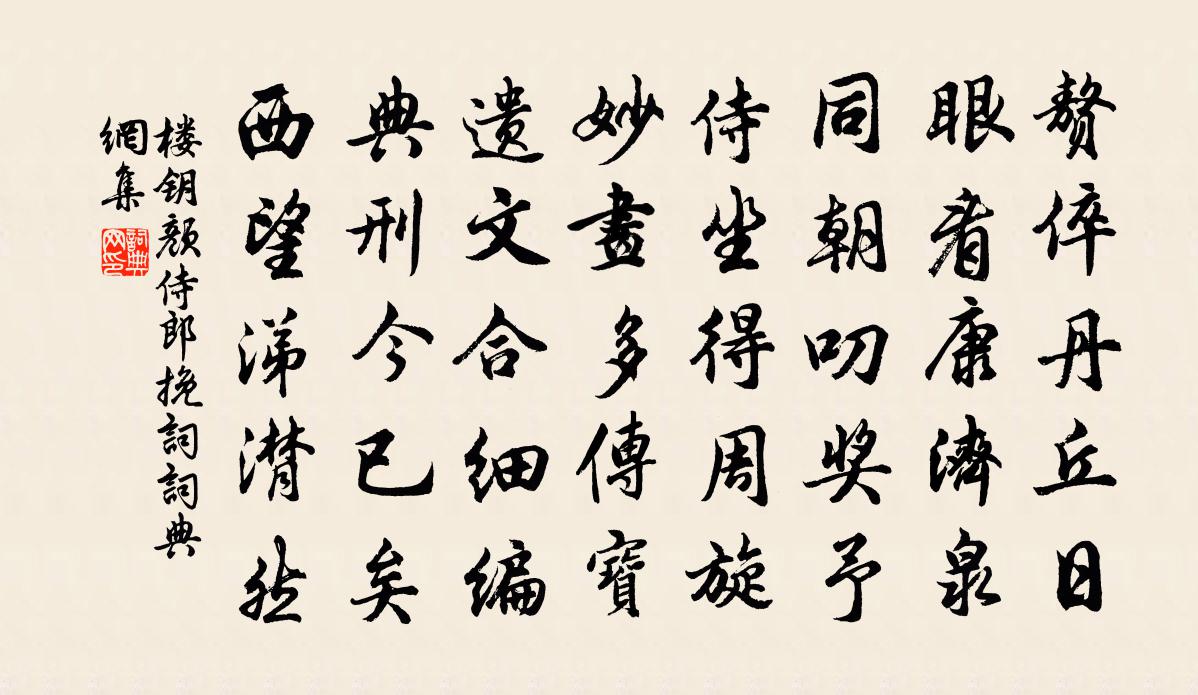 贅倅丹丘日
眼看康濟泉
同朝叨奖予
侍坐得周旋
妙畫多傳寶
遗文合细编
典刑今已矣
西望涕潸然
楼钥颜侍郎挽詞詞典
網集
詞典
网印